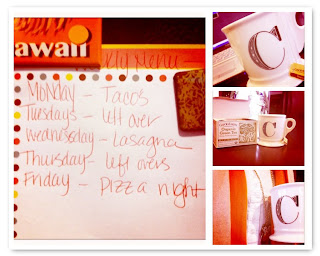 awaii
My Menu
Monday - Tacos
Tuesdays - left over
Wednesday - Lasagna
Thursday - left overs
Friday - Pizza night
C
C
Organic
Green Tea
C